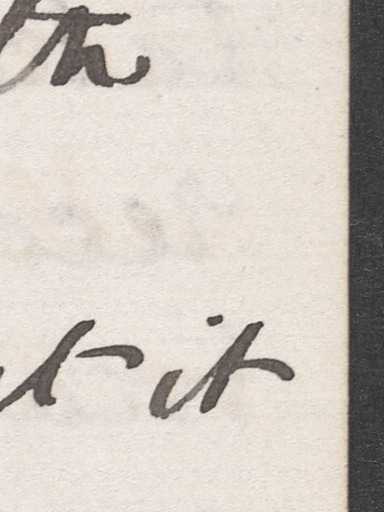 th
t it